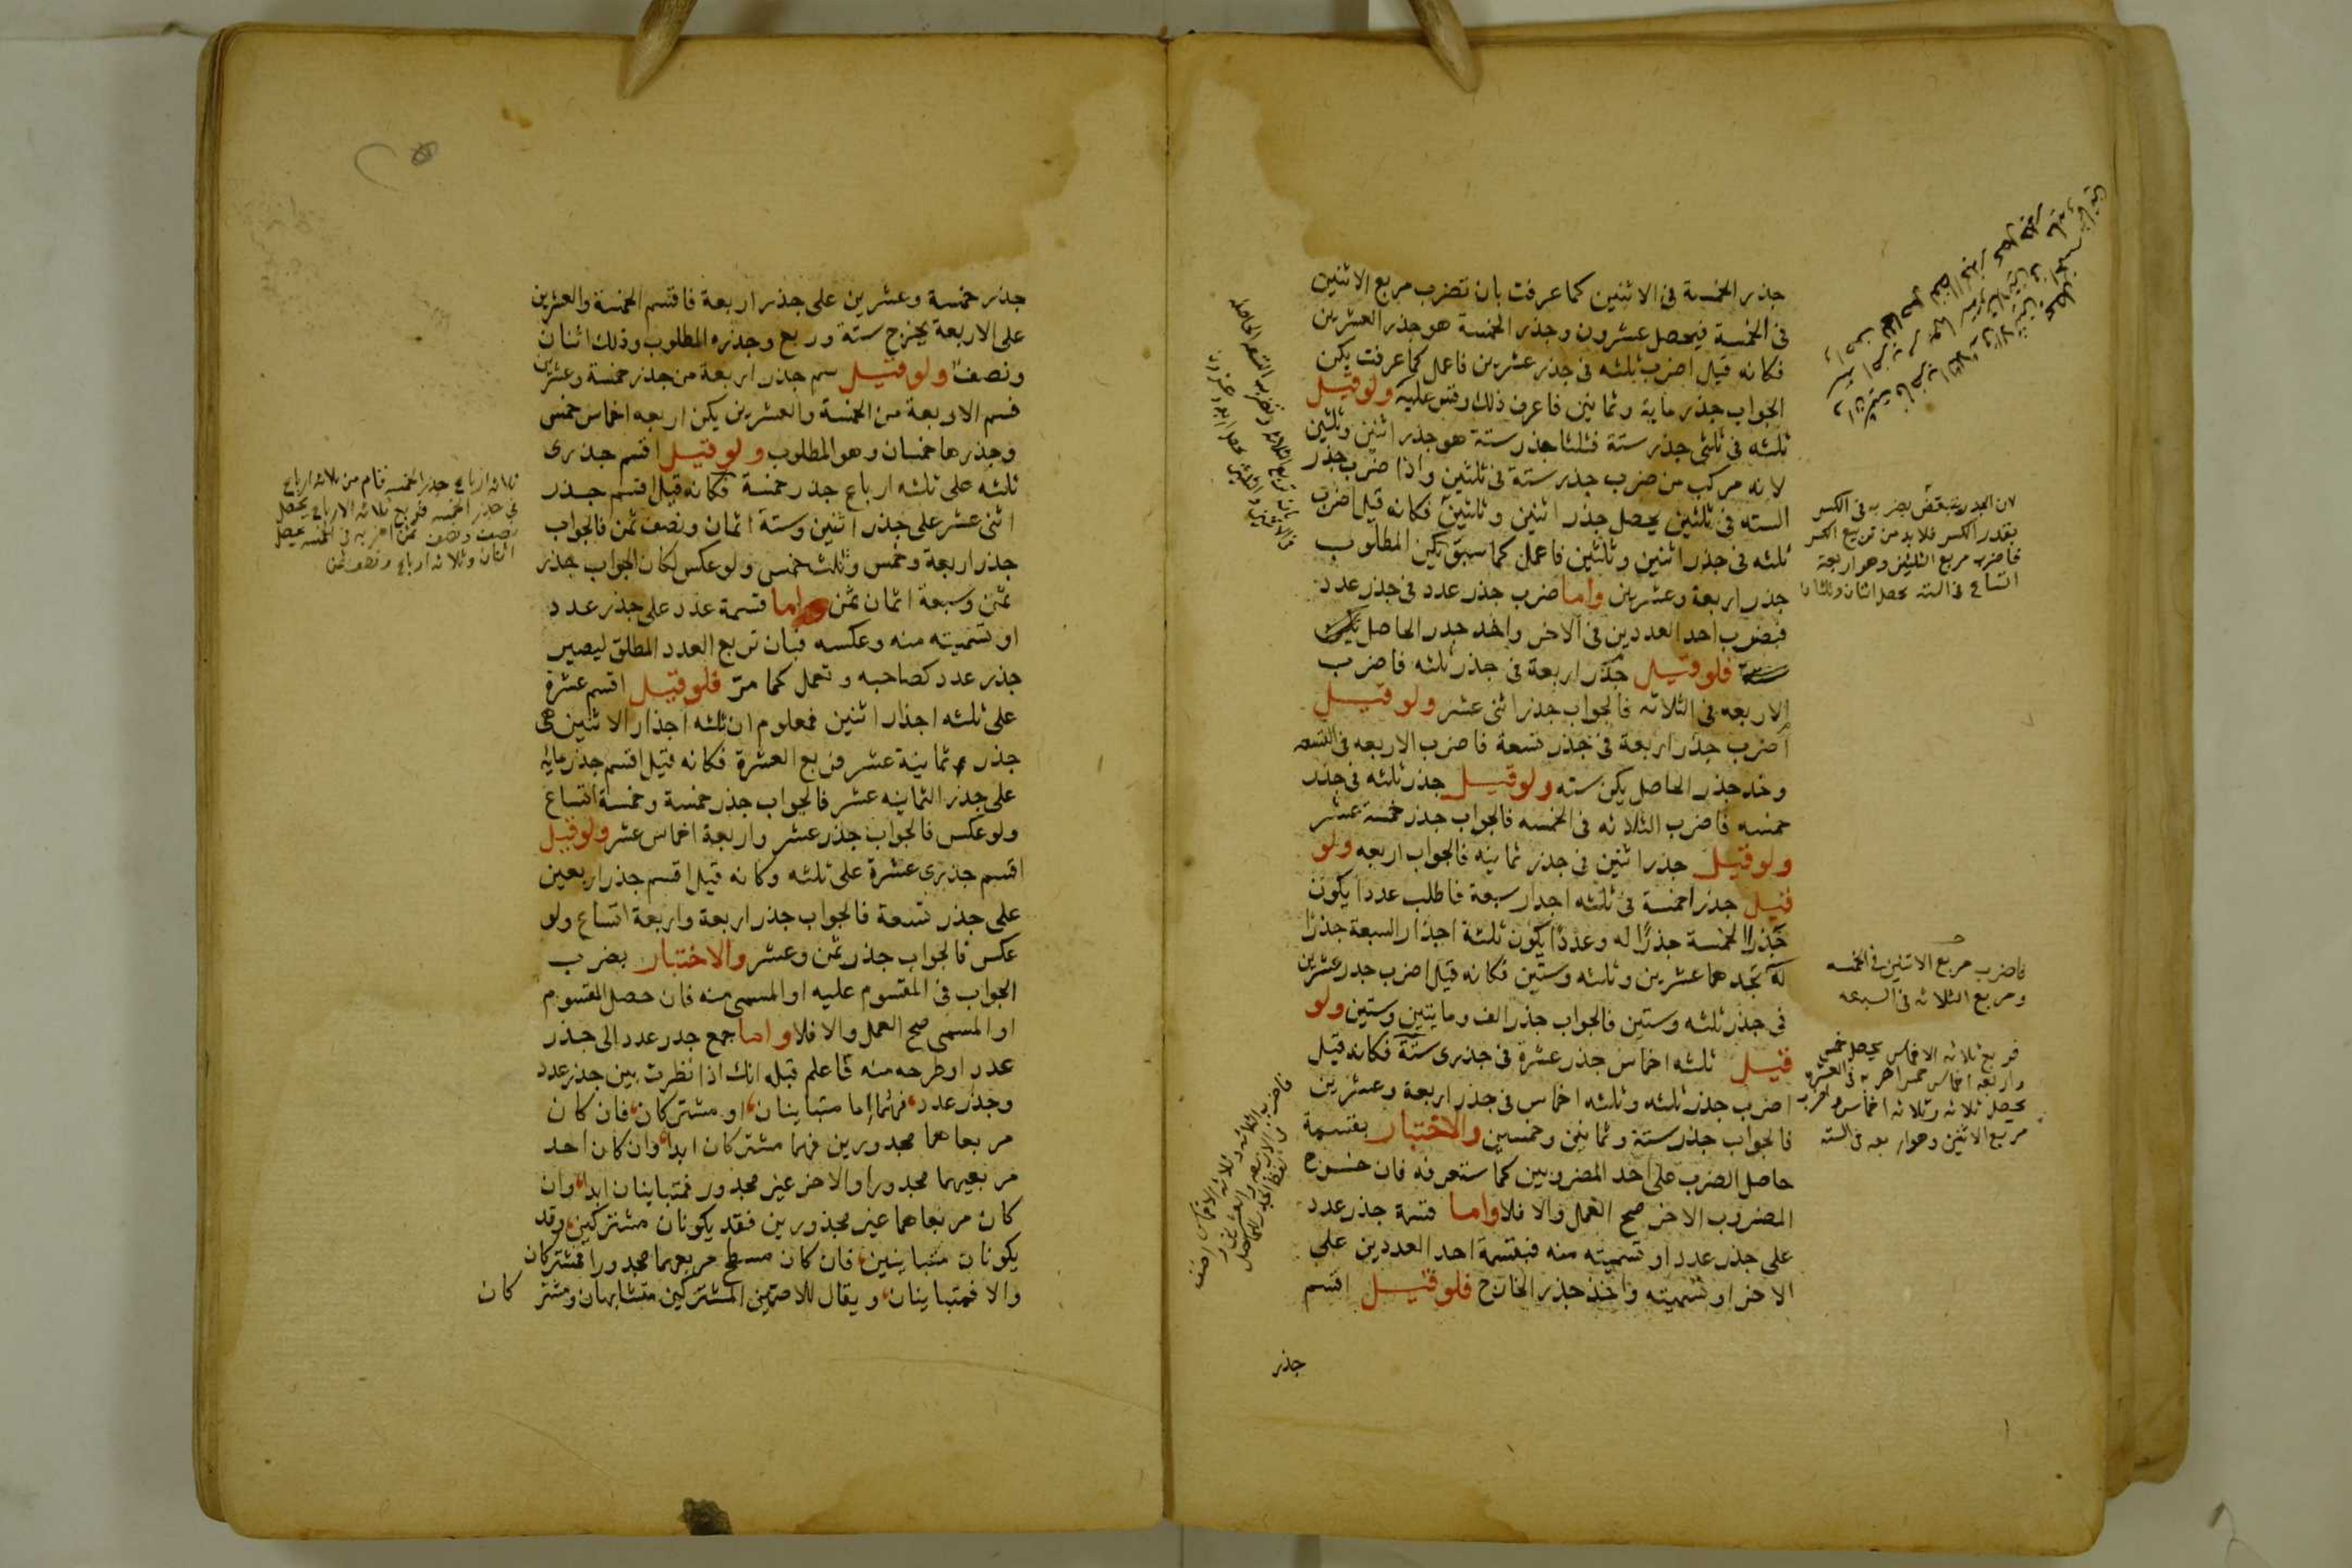 جذر الخمسة فى الاثنين كما عرفت بان تضرب مربع الاثنين
فى الخمسة فيحصل عشرون وجذر الخمسة هو جذر العشرين
فكانه قيل اضرب ثلثه فى جذر عشرين فاعمل كما عرفت يكن
الجواب جذر ماية وثمانين فاعرف ذلك وقس عليه ولو قيل
ثلثه فى ثلثى جذر ستة فثلثا جذر ستة هو جذر اثنين وثلثين
لانه مركب من ضرب جذر ستة فى ثلثين واذا ضرب جذر
السته فى ثلثين يحصل جذر اثنين وثلثين فكانه قيل اضرب
ثلثه فى جذر اثنين وثلثين فاعمل كما سبق يكن المطلوب
جذر اربعة وعشرين واما ضرب جذر عدد فى جذر عدد
فبضرب احد العددين فى الاخر واخذ جذر الحاصل
فلو قيل جذر اربعة فى جذر ثلثه فاضرب
الاربعه فى الثلاثه فالجواب جذر اثنى عشر ولو قيل
اضرب جذر اربعة فى جذر تسعة فاضرب الاربعه فى التسعه
وخذ جذر الحاصل يكن سته ولو قيل جذر ثلثه فى جذر
خمسه فاضرب الثلاثه فى الخمسه فالجواب جذر خمسة عشر
ولو قيل جذر اثنين فى جذر ثمانيه فالجواب اربعه ولو
قيل جذرا خمسة فى ثلثه اجذار سبعة فاطلب عددا يكون
جذرا الخمسة جذرًا له وعددًا يكون ثلثة اجذار السبعة جذرًا
له تجدهما عشرين وثلثه وستين فكانه قيل اضرب جذر عشرين
فى جذر ثلثه وستين فالجواب جذر الف ومايتين وستين ولو
قيل ثلثه اخماس جذر عشرة فى جذرى ستة فكانه قيل
اضرب جذر ثلثه وثلثه اخماس فى جذر اربعة وعشرين
فالجواب جذر ستة وثمانين وخمسين والاختبار بقسمة
حاصل الضرب على احد المضروبين كما ستعرفه فان خرج
المضروب الاخر صح العمل والا فلا واما قسمة جذر عدد
على جذر عدد او تسميته منه فبقسمة احد العددين على
الاخر او تسميته واخذ جذر الخارج فلو قيل اقسم
جذر
لان الجذر ينقص بضربه فى الكسر
بقدر الكسر فلا بد من تربيع الكسر
فاضرب مربع الثلثين وهو اربعة
اتساع فى السته يحصل اثنان وثلثان
فاضرب مربع الاثنين فى الخمسه
ومربع الثلاثه فى السبعه
فربع ثلاثه الاخماس يحصل خمس
واربعه اخماس خمس اضربه فى العشره
يحصل ثلاثه وثلاثه اخماس واضرب
مربع الاثنين وهو اربعه فى السته
جذر خمسة وعشرين على جذر اربعة فاقسم الخمسة والعشرين
على الاربعة يخرج ستة وربع وجذره المطلوب وذلك اثنان
ونصف ولو قيل سم جذر اربعة من جذر خمسة وعشرين
فسم الاربعة من الخمسة والعشرين يكن اربعه اخماس خمس
وجذرها خمسان وهو المطلوب ولو قيل اقسم جذرى
ثلثه على ثلثه ارباع جذر خمسة فكانه قيل اقسم جذر
اثنى عشر على جذر اثنين وستة اثمان ونصف ثمن فالجواب
جذر اربعة وخمس وثلث خمس ولو عكس لكان الجواب جذر
ثمن وسبعة اثمان ثمن واما قسمة عدد على جذر عدد
او تسميته منه وعكسه فبان تربع العدد المطلق ليصير
جذر عدد كصاحبه وتعمل كما مرّ فلو قيل اقسم عشرة
على ثلثه اجذار اثنين فمعلوم ان ثلثه اجذار الاثنين هى
جذر ثمانية عشر فربع العشرة فكانه قيل اقسم جذر مايه
على جذر الثمانيه عشر فالجواب جذر خمسة وخمسة اتساع
ولو عكس فالجواب جذر عشر واربعة اخماس عشر ولو قيل
اقسم جذرى عشرة على ثلثه وكانه قيل اقسم جذر اربعين
على جذر تسعة فالجواب جذر اربعة واربعة اتساع ولو
عكس فالجواب جذر ثمن وعشر والاختبار بضرب
الجواب فى المقسوم عليه او المسمى منه فان حصل المقسوم
او المسمى صح العمل والا فلا واما جمع جذر عدد الى جذر
عدد او طرحه منه فاعلم قبله انك اذا نظرت بين جذر عدد
وجذر عدد فهما اما متباينان او مشتركان فان كان
مربعاهما مجدورين فهما مشتركان ابدا وان كان احد
مربعيهما مجدورا والاخر غير مجذور فمتباينان ابدا وان
كان مربعاهما غير مجذورين فقد يكونان مشتركين وقد
يكونان متباينين فان كان مسطح مربعيهما مجدورا فمشتركان
والا فمتباينان ويقال للاصمين المشتركين متشابهان ومشتركان
ثلاثه ارباع جذر الخمسه قام من ثلاثه ارباع
فى جذر الخمسه فربع ثلاثه الارباع يحصل
نصف ونصف ثمن اضربه فى الخمسه يحصل
اثنان وثلاثه ارباع ونصف ثمن